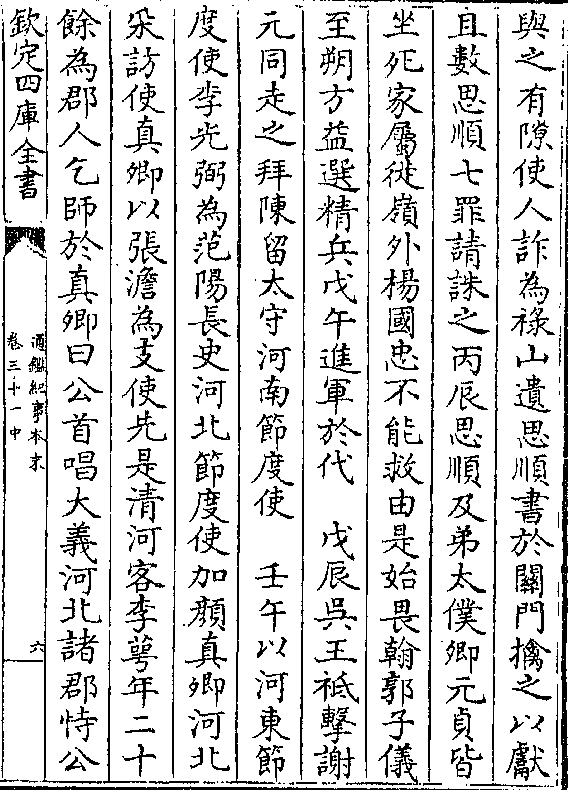 與之有隙使人詐為祿山遺思順書於關門擒之以獻
且數思順七罪請誅之丙辰思順及弟太僕卿元貞皆
坐死家屬徙嶺外楊國忠不能救由是始畏翰郭子儀
至朔方益選精兵戊午進軍於代　戊辰吳王祗擊謝
元同走之拜陳留太守河南節度使　壬午以河東節
度使李光弼為范陽長史河北節度使加顔真卿河北
采訪使真卿以張澹為支使先是清河客李萼年二十
餘為郡人乞師於真卿曰公首唱大義河北諸郡恃公
欽定四庫全書
通鑑紀事本末
卷三十一中
六